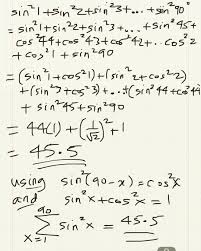 sin²1+sin²2+sin²3+...+sin²90°
=sin²1+sin²2+sin²3+...+sin²45+
cos²44+cos²43+cos²42+..cos²2
+cos²1+sin²90
=(sin²1+cos²1)+(sin²2+cos²2)
+(sin²3+cos²3)+..+(sin²44+cos²44)
+sin²45+sin²90
=44(1)+(1/√2)²+1
=45.5
using sin²(90-x)=cos²x
and sin²x+cos²x=1
90
∑ sin²x = 45.5
x=1